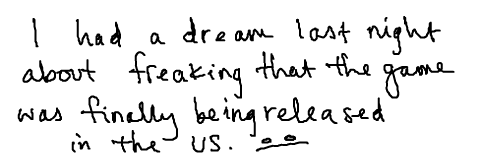 I had a dream last night
about freaking that the game
was finally being released
in the US.